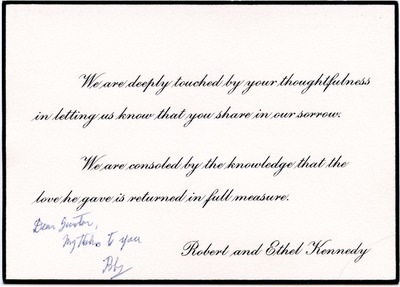 We are deeply touched by your thoughtfulness
in letting us know that you share in our sorrow.
We are consoled by the knowledge that the
love he gave is returned in full measure.
Dear
my thks to you
Bby
Robert and Ethel Kennedy